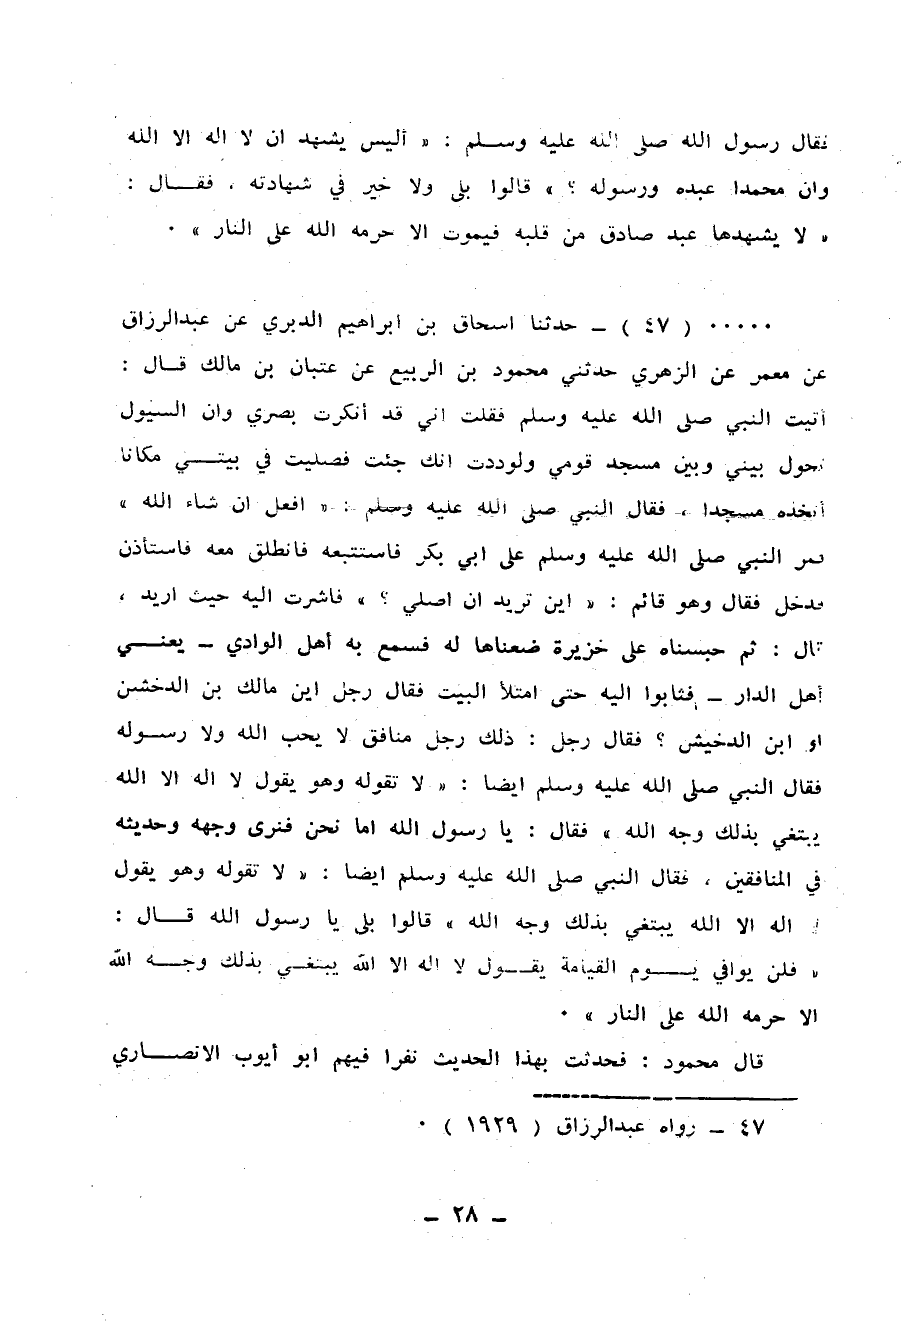 فقال رسول الله صلى الله عليه وسلم : « أليس يشهد ان لا اله الا الله
وان محمدا عبده ورسوله ؟ » قالوا بلى ولا خير في شهادته ، فقال :
« لا يشهدها عبد صادق من قلبه فيموت الا حرمه الله على النار » ·
····· ( ٤٧ ) – حدثنا اسحاق بن ابراهيم الدبري عن عبدالرزاق
عن معمر عن الزهري حدثني محمود بن الربيع عن عتبان بن مالك قال :
أتيت النبي صلى الله عليه وسلم فقلت اني قد أنكرت بصري وان السيول
تحول بيني وبين مسجد قومي ولوددت انك جئت فصليت في بيتي مكانا
أتخذه مسجدا ، فقال النبي صلى الله عليه وسلم : « افعل ان شاء الله »
فمر النبي صلى الله عليه وسلم على ابي بكر فاستتبعه فانطلق معه فاستأذن
فدخل فقال وهو قائم : « اين تريد ان اصلي ؟ » فاشرت اليه حيث اريد ،
قال : ثم حبسناه على خزيرة صنعناها له فسمع به أهل الوادي – يعني
أهل الدار – فثابوا اليه حتى امتلأ البيت فقال رجل اين مالك بن الدخشن
او ابن الدخيش ؟ فقال رجل : ذلك رجل منافق لا يحب الله ولا رسوله
فقال النبي صلى الله عليه وسلم ايضا : « لا تقوله وهو يقول لا اله الا الله
يبتغي بذلك وجه الله » فقال : يا رسول الله اما نحن فنرى وجهه وحديثه
في المنافقين ، فقال النبي صلى الله عليه وسلم ايضا : « لا تقوله وهو يقول
لا اله الا الله يبتغي بذلك وجه الله » قالوا بلى يا رسول الله قال :
« فلن يوافي يوم القيامة يقول لا اله الا الله يبتغي بذلك وجه الله
الا حرمه الله على النار » ·
قال محمود : فحدثت بهذا الحديث نفرا فيهم ابو أيوب الانصاري
٤٧ – رواه عبدالرزاق ( ١٩٢٩ ) ·
– ٢٨ –